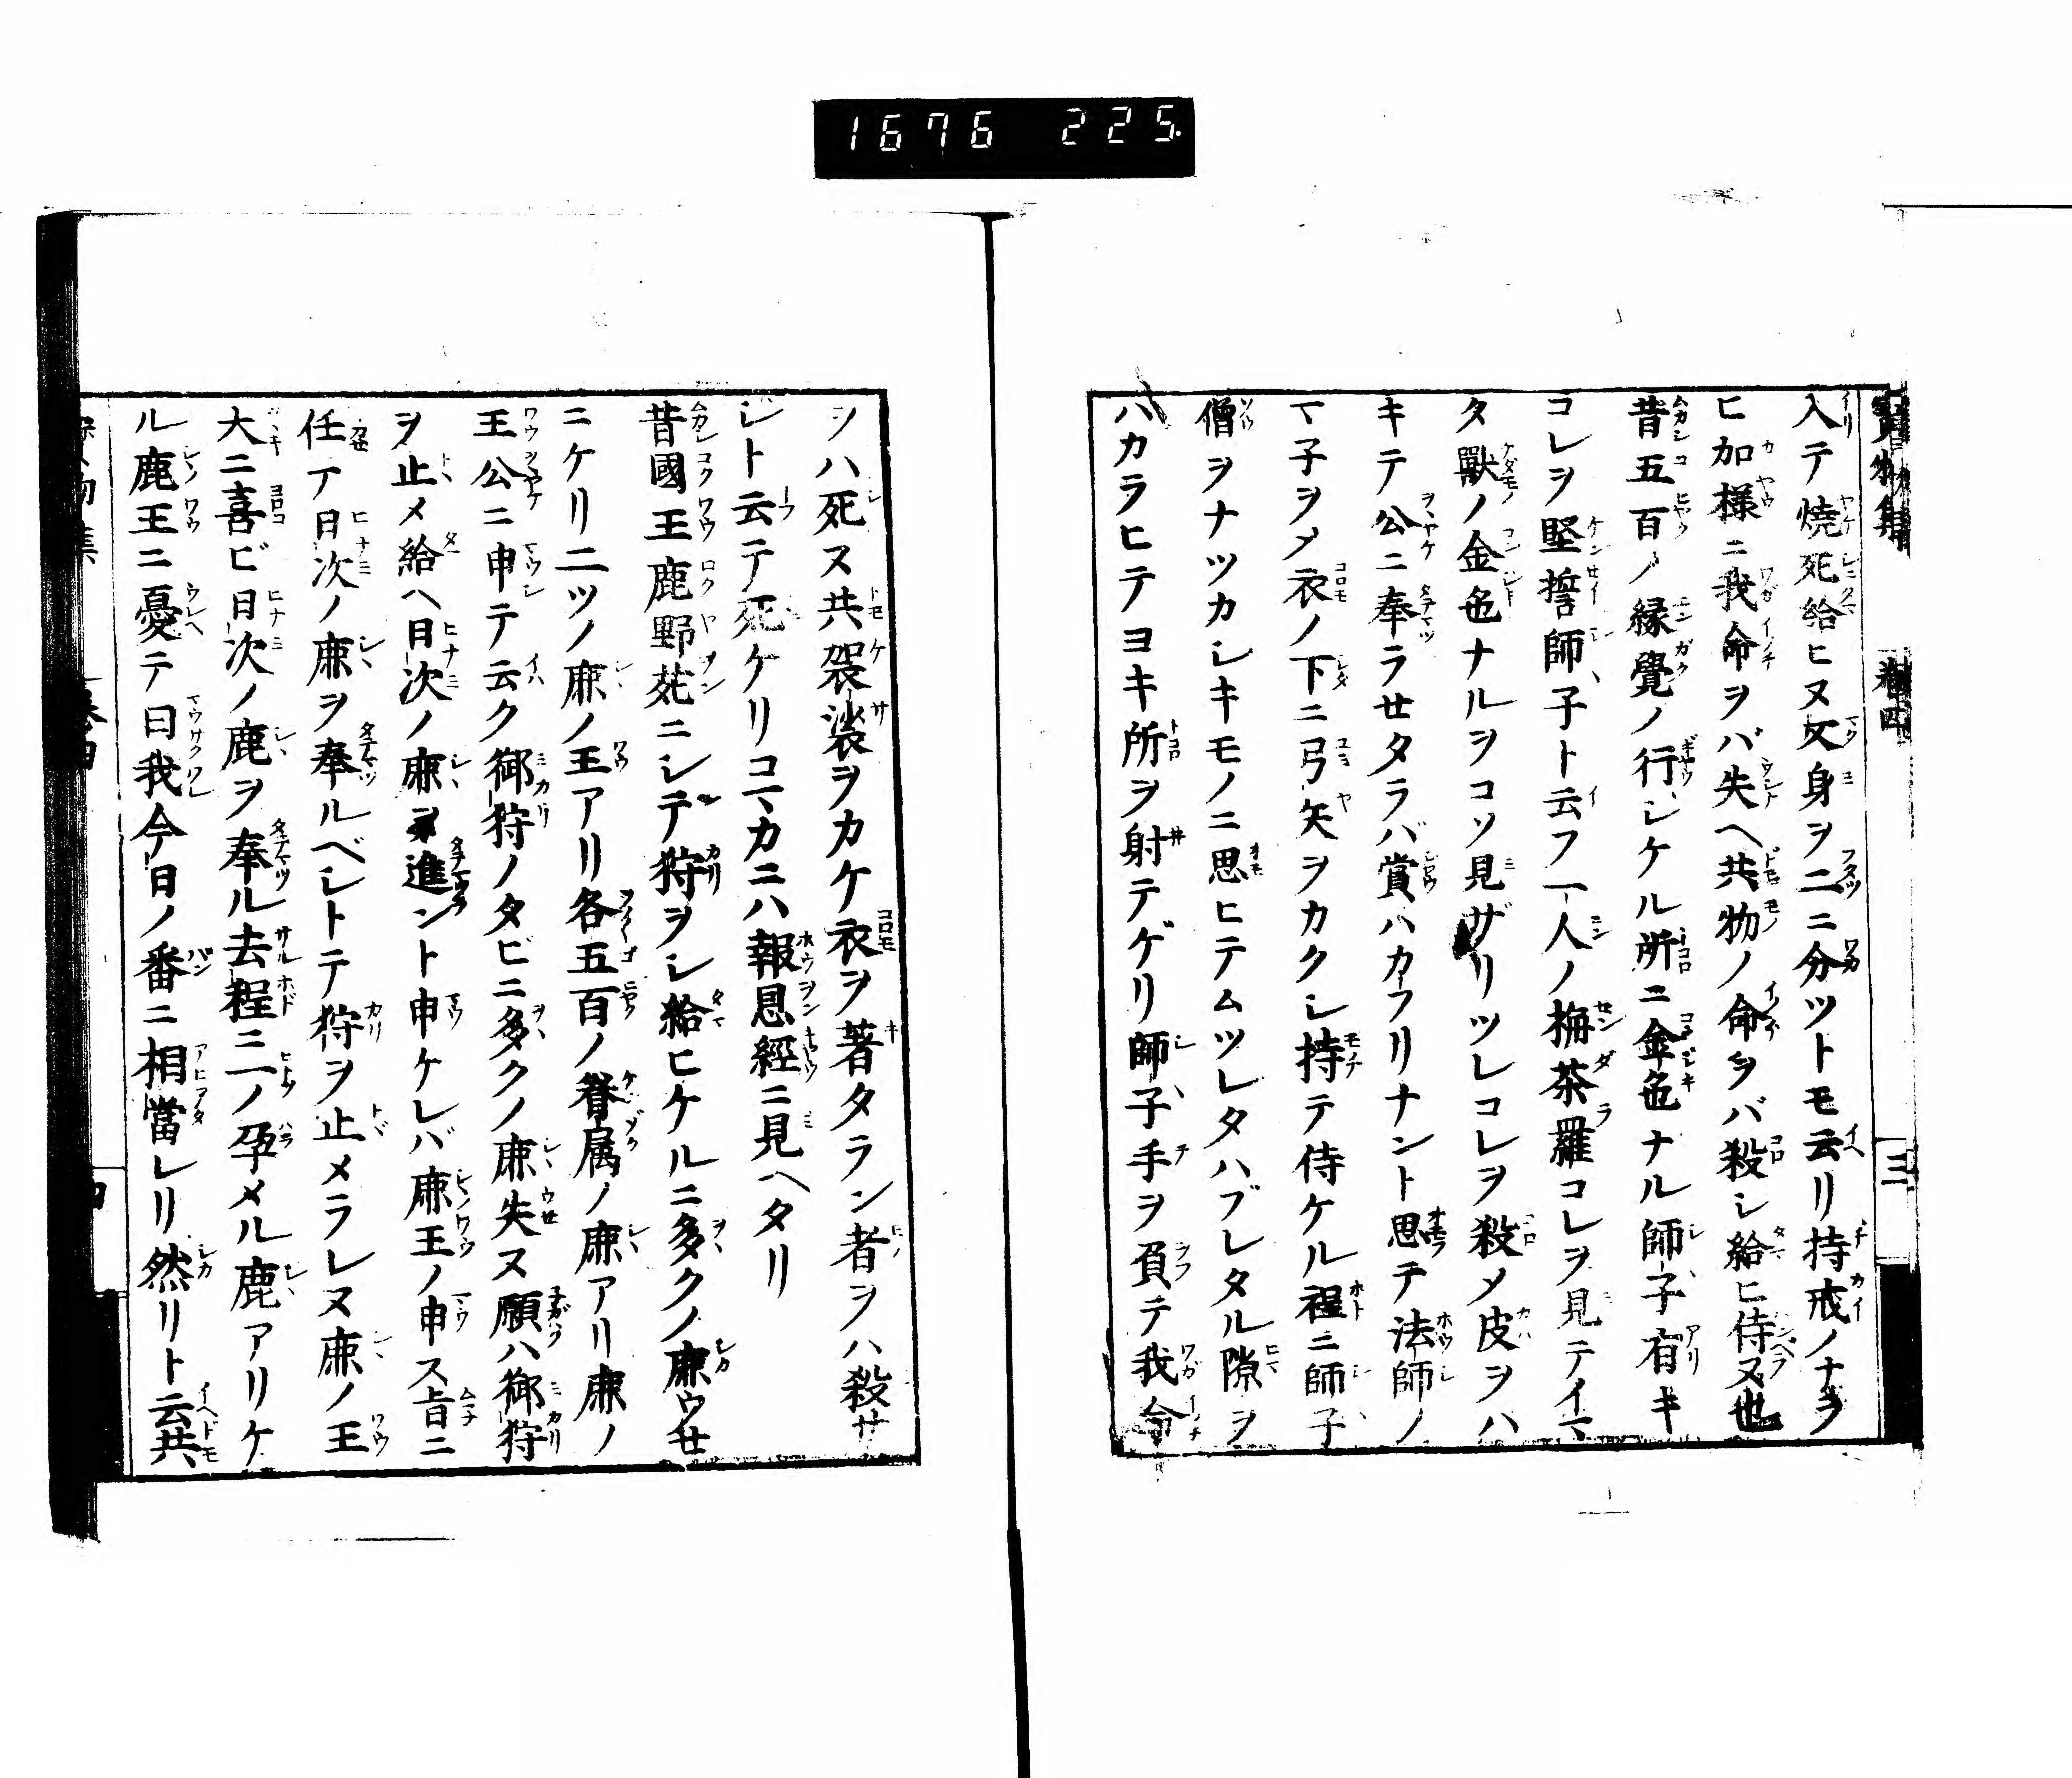 1676 225
寳物集 卷四 三
入テ燒死給ヒヌ又身ヲ二ニ分ツトモ云リ持戒ノナラ
ヒ加樣ニ我命ヲバ失ヘ共物ノ命ヲバ殺シ給ヒ侍ヌ也
昔五百ノ緣覺ノ行シケル所ニ金色ナル師子有キ
コレヲ堅誓師子ト云フ一人ノ栴荼羅コレヲ見テイマ
タ獸ノ金色ナルヲコソ見ザリツレコレヲ殺メ皮ヲハ
キテ公ニ奉ラせタラバ賞ハカフリナント思テ法師ノ
マ子ヲメ衣ノ下ニ弓矢ヲカクシ持テ侍ケル程ニ師子
僧ヲナツカシキモノニ思ヒテムツレタハブレタル隙ヲ
ハカラヒテヨキ所ヲ射テゲリ師子手ヲ負テ我命
ヲハ死ス共袈裟ヲカケ衣ヲ著タラン者ヲハ殺サ
シト云テ死ケリコマカニハ報恩經ニ見ヘタリ
昔國王鹿野苑ニシテ狩ヲシ給ヒケルニ多クノ鹿ウせ
ニケリ二ツノ鹿ノ王アリ各五百ノ眷属ノ鹿アリ鹿ノ
王公ニ申テ云ク御狩ノタビニ多クノ鹿失ヌ願ハ御狩
ヲ止メ給ヘ日次ノ鹿ヲ進ント申ケレバ鹿王ノ申ス旨ニ
任テ日次ノ鹿ヲ奉ルベシトテ狩ヲ止メラレヌ鹿ノ王
大ニ喜ビ日次ノ鹿ヲ奉ル去程ニ一ノ孕メル鹿アリケ
ル鹿王ニ憂テ曰我今日ノ番ニ相當レリ然リト云共